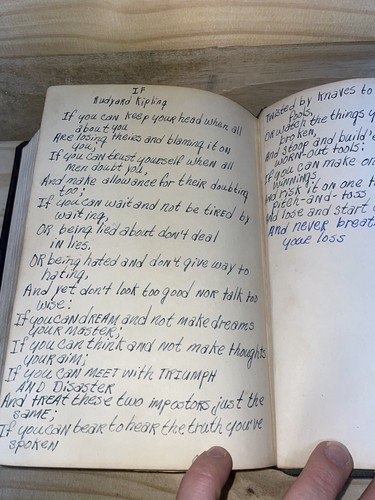 IF
Rudyard Kipling
If you can keep your head when all
about you
Are losing theirs and blaming it on
you,
If you can trust yourself when all
Men doubt you,
And make allowance for their doubting
too;
If you can wait and not be tired by
waiting,
OR being lied about don't deal
in lies.
OR being hated and don't give way to
hating,
And yet don't look too good nor talk too
wise:
If you can dREAM and not make dreams
your master;
If you can think and not make thoughts
your aim;
If you can MEET with TRIUMPH
AND DISASTER
And tREAt these two impostors just the
same;
If you can bear to hear the truth you've
spoken
Twisted by knaves to
fools,
OR watch the things y
broken,
And stoop and build'e
WORN-out tools:
If you can make on
winnings
And risk it on one t
pitch-and-toss
And lose and start
And never breat
your loss